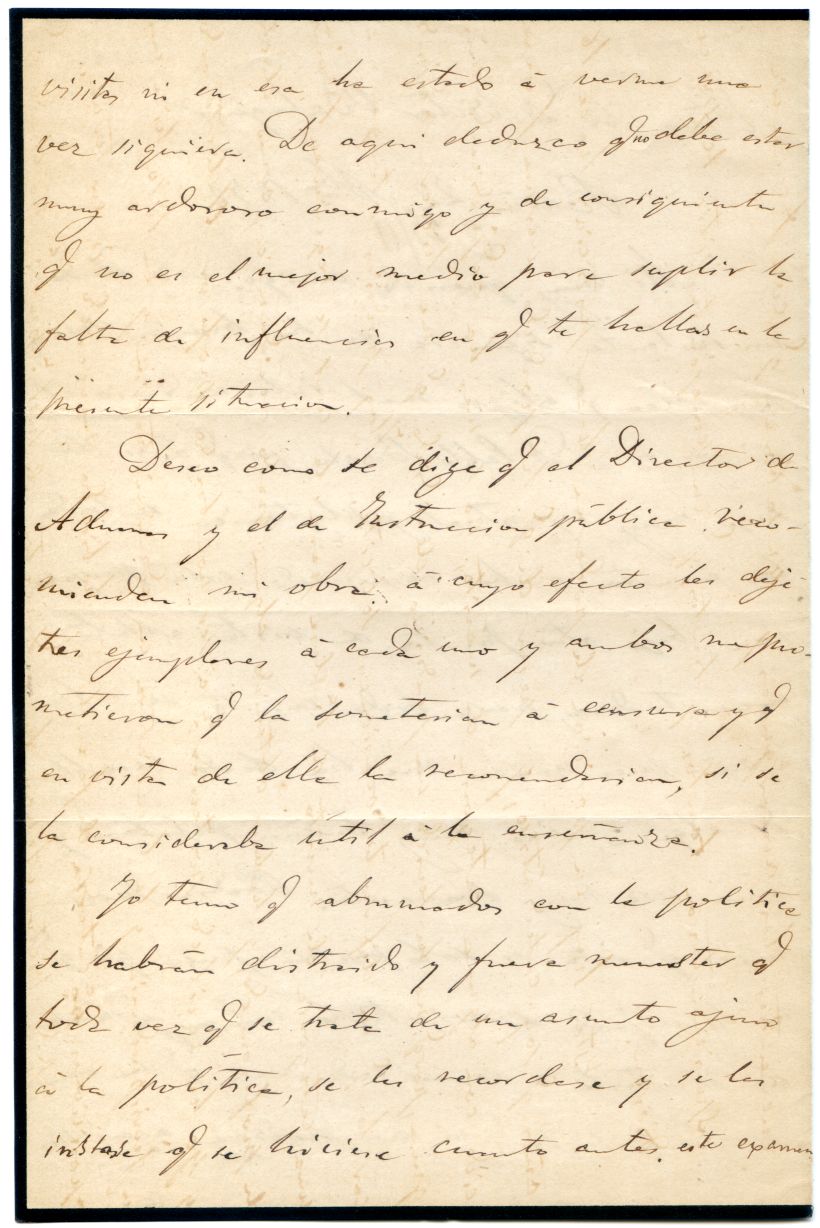 visitas ni en esa ha estado á verme una
vez siquiera. De aqui deduzco q no debe estar
muy ardoroso conmigo y de consiguiente
q no es el mejor medio para suplir la
falta de influencias en q te hallas en la
presente situacion.
Deseo como te dige q el Director de
Aduanas y el de Instrucion pública reco-
mienden mi obra. á cuyo efecto les dejé
tres ejemplares á cada uno y ambos me pro-
metieron q la someterian á censura y q
en vista de ella la recomendarian, si se
la consideraba útil á la enseñanza.
Yo temo q abrumados con la politica
se habrán distraido y fuera menester q
toda vez q se trata de un asunto ajeno
á la política, se les recordase y se les
instase q se hiciese cuanto antes este examen